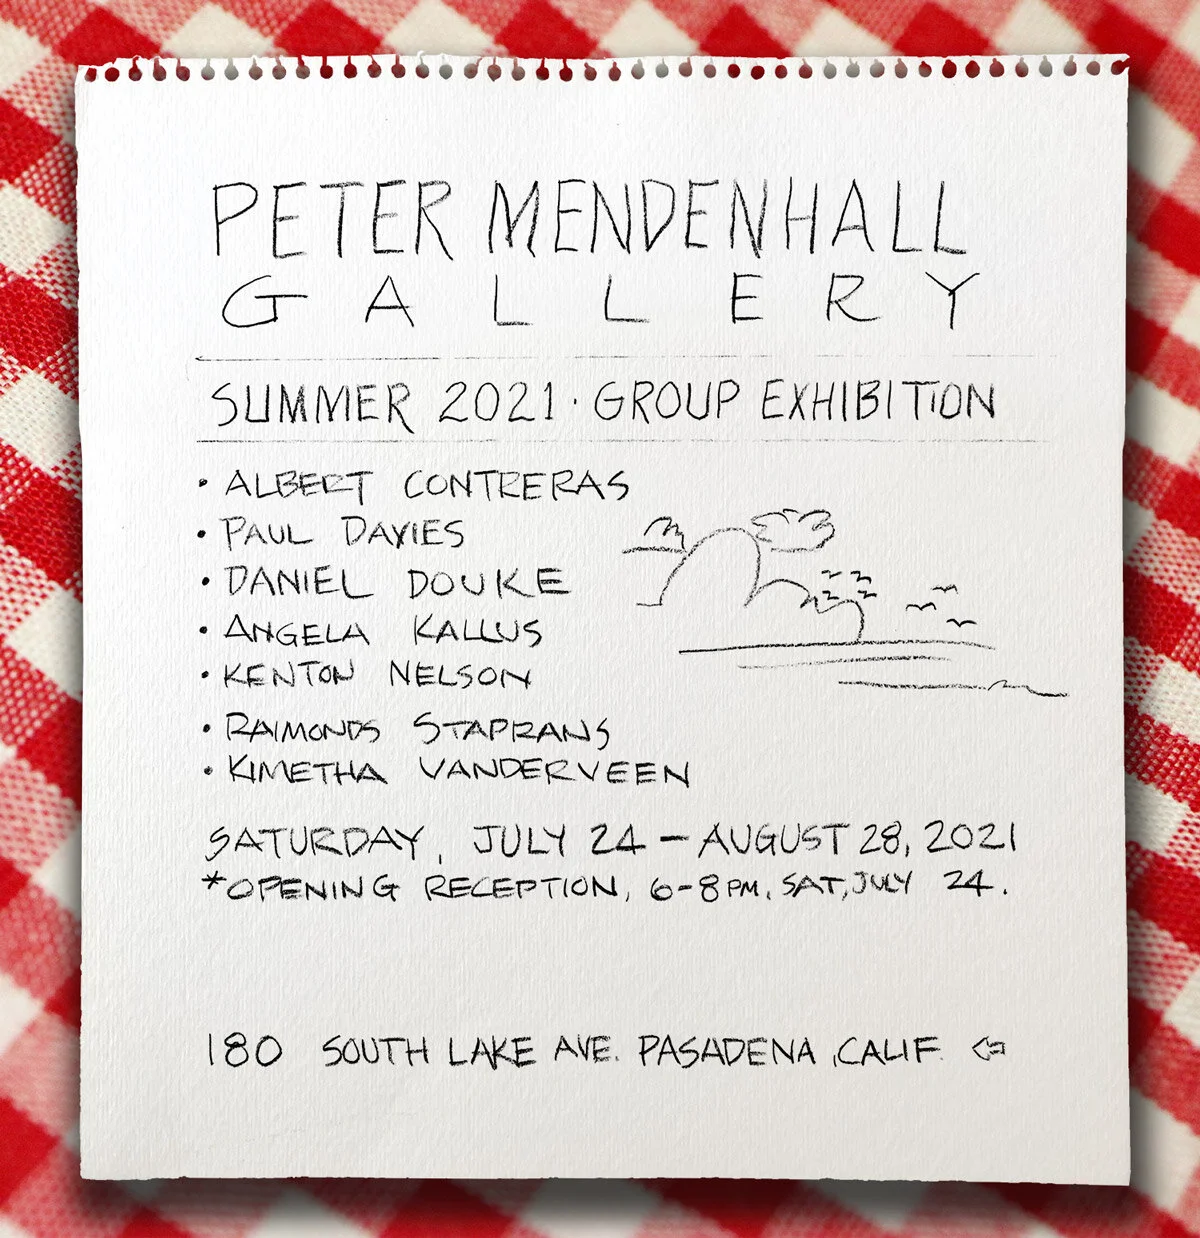 PETER MENDENHALL
GALLERY
SUMMER 2021 · GROUP EXHIBITION
• ALBERT CONTRERAS
• PAUL DAVIES
• DANIEL DOUKE
• ANGELA KALLUS
• KENTON NELSON
• RAIMONDS STAPRANS
• KIMETHA VANDERVEEN
SATURDAY, JULY 24 – AUGUST 28, 2021
*OPENING RECEPTION, 6-8 PM, SAT, JULY 24.
180 SOUTH LAKE AVE. PASADENA, CALIF. ⇦